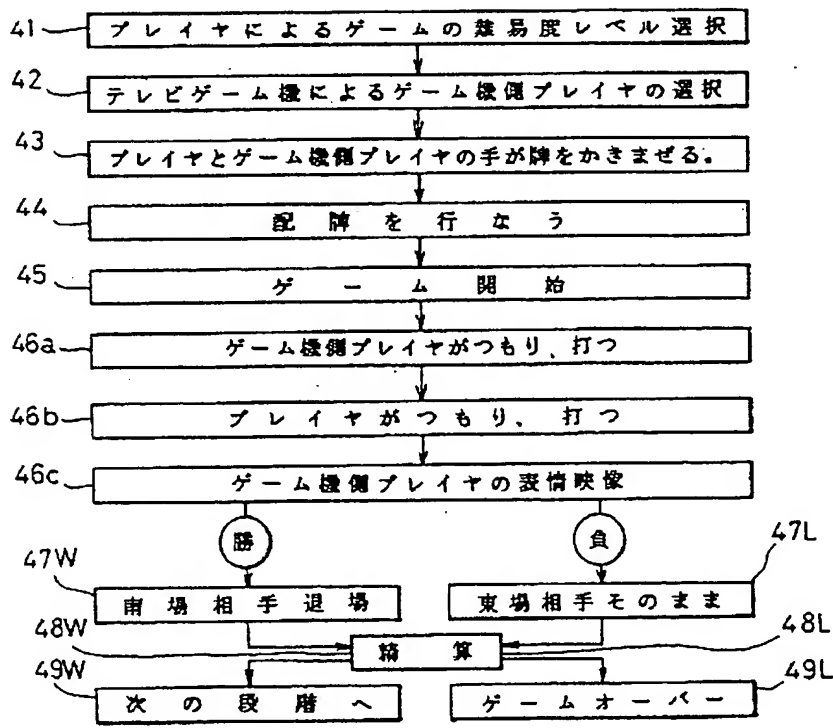 41 プレイヤによるゲームの難易度レベル選択
42 テレビゲーム機によるゲーム機側プレイヤの選択
43 プレイヤとゲーム機側プレイヤの手が牌をかきまぜる。
44 配牌を行なう
45 ゲーム開始
46a ゲーム機側プレイヤがつもり、打つ
46b プレイヤがつもり、打つ
46c ゲーム機側プレイヤの表情映像
勝 負
47W 南場相手退場 東場相手そのまま 47L
48W 精算 48L
49W 次の段階へ ゲームオーバー 49L